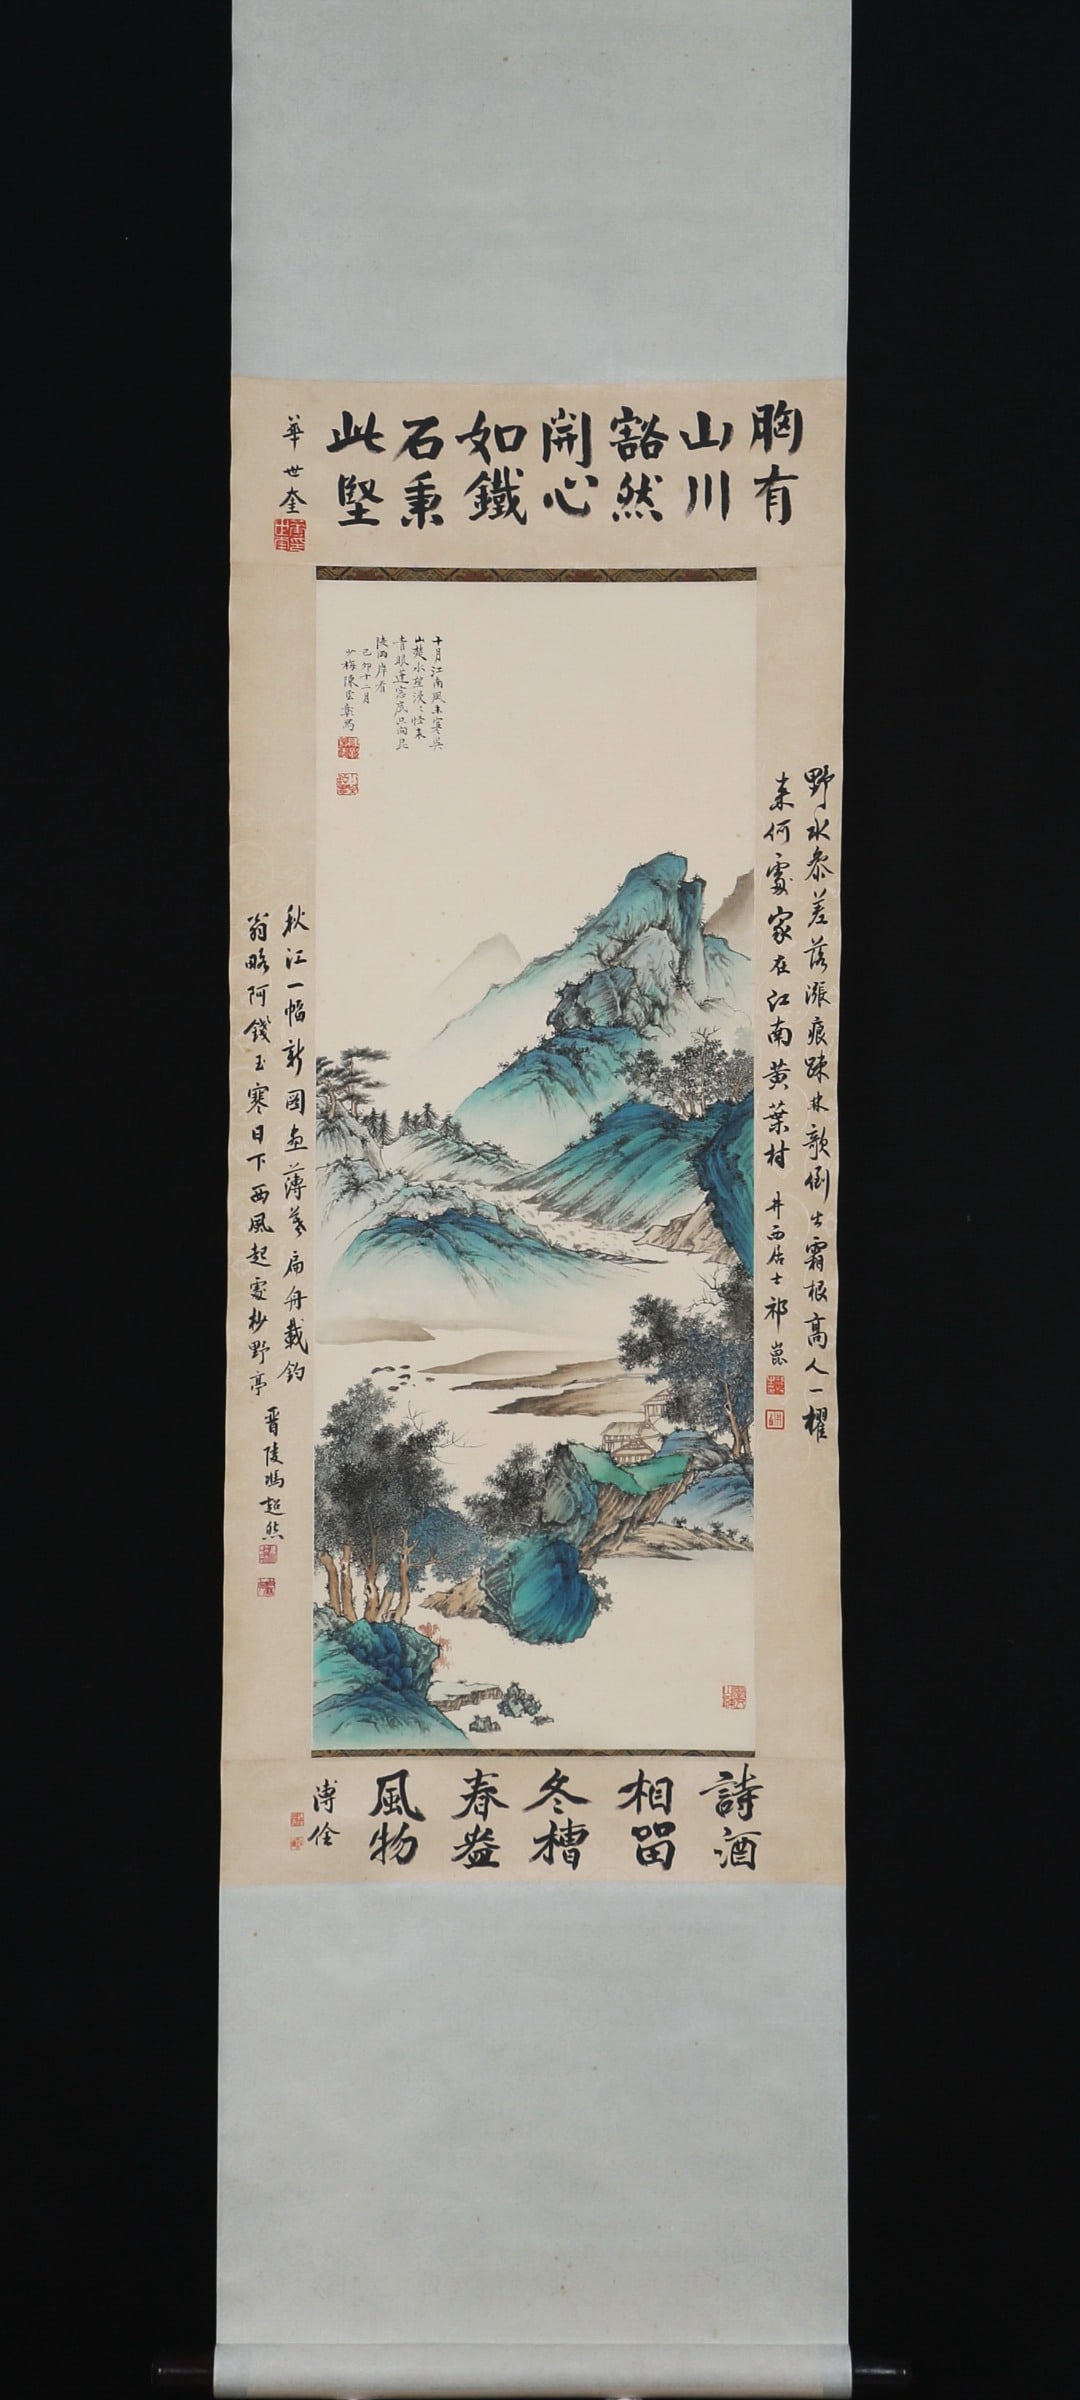 胸有
山川
豁然
開心
如鐵
石秉
此堅
華世奎
十月江南風未寒吳
山楚水碧漫漫怪來
青眼蓬窗底只向尼
陵兩岸看
己卯十二月
少梅陳雲彰寫
野水參差落漲痕疎林欹倒出霜根高人一櫂
來何處家在江南黃葉村 井西居士祁崑
秋江一幅新圖畫薄暮扁舟載釣
翁略阿錢玉寒日下西風起處杪野亭 晋陵馮超然
詩酒
相留
冬槽
春盎
風物
溥佺